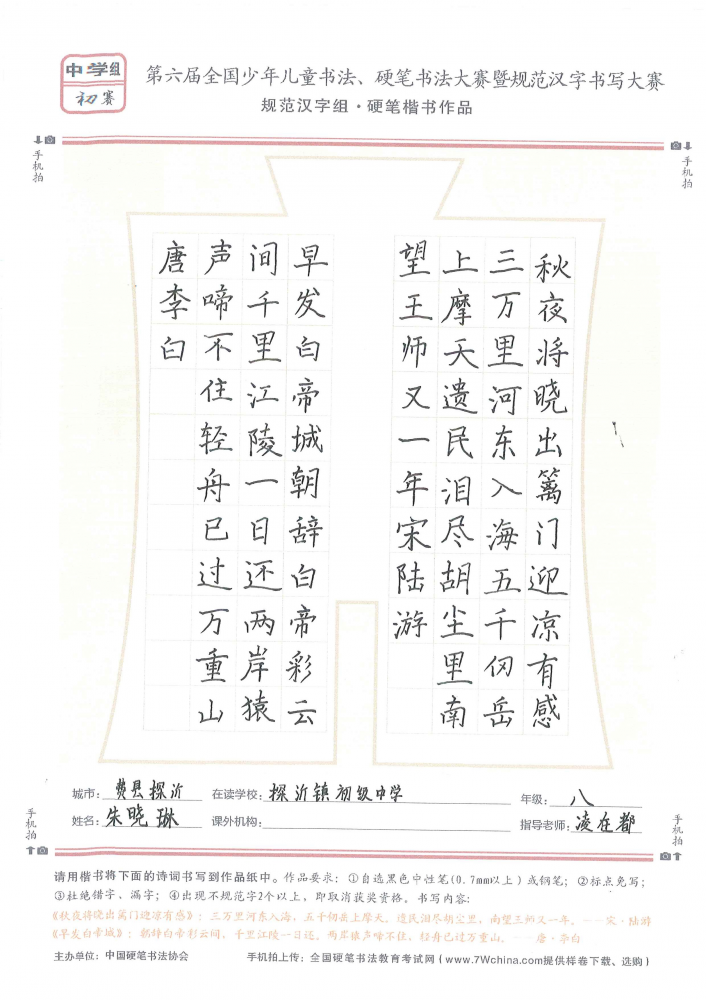 中学组
初赛
第六届全国少年儿童书法、硬笔书法大赛暨规范汉字书写大赛
规范汉字组·硬笔楷书作品
手机拍
手机拍
秋夜将晓出篱门迎凉有感
三万里河东入海五千仞岳
上摩天遗民泪尽胡尘里南
望王师又一年宋陆游
早发白帝城朝辞白帝彩云
间千里江陵一日还两岸猿
声啼不住轻舟已过万重山
唐李白
城市：费县探沂 在读学校：探沂镇初级中学 年级：八
姓名：朱晓琳 课外机构： 指导老师：凌在都
手机拍
手机拍
请用楷书将下面的诗词书写到作品纸中。作品要求：①自选黑色中性笔(0.7mm以上)或钢笔；②标点免写；
③杜绝错字、漏字；④出现不规范字2个以上，即取消获奖资格。书写内容：
《秋夜将晓出篱门迎凉有感》：三万里河东入海，五千仞岳上摩天。遗民泪尽胡尘里，南望王师又一年。——宋·陆游
《早发白帝城》：朝辞白帝彩云间，千里江陵一日还。两岸猿声啼不住，轻舟已过万重山。——唐·李白
主办单位：中国硬笔书法协会 手机拍上传：全国硬笔书法教育考试网(www.7Wchina.com提供样卷下载、选购)